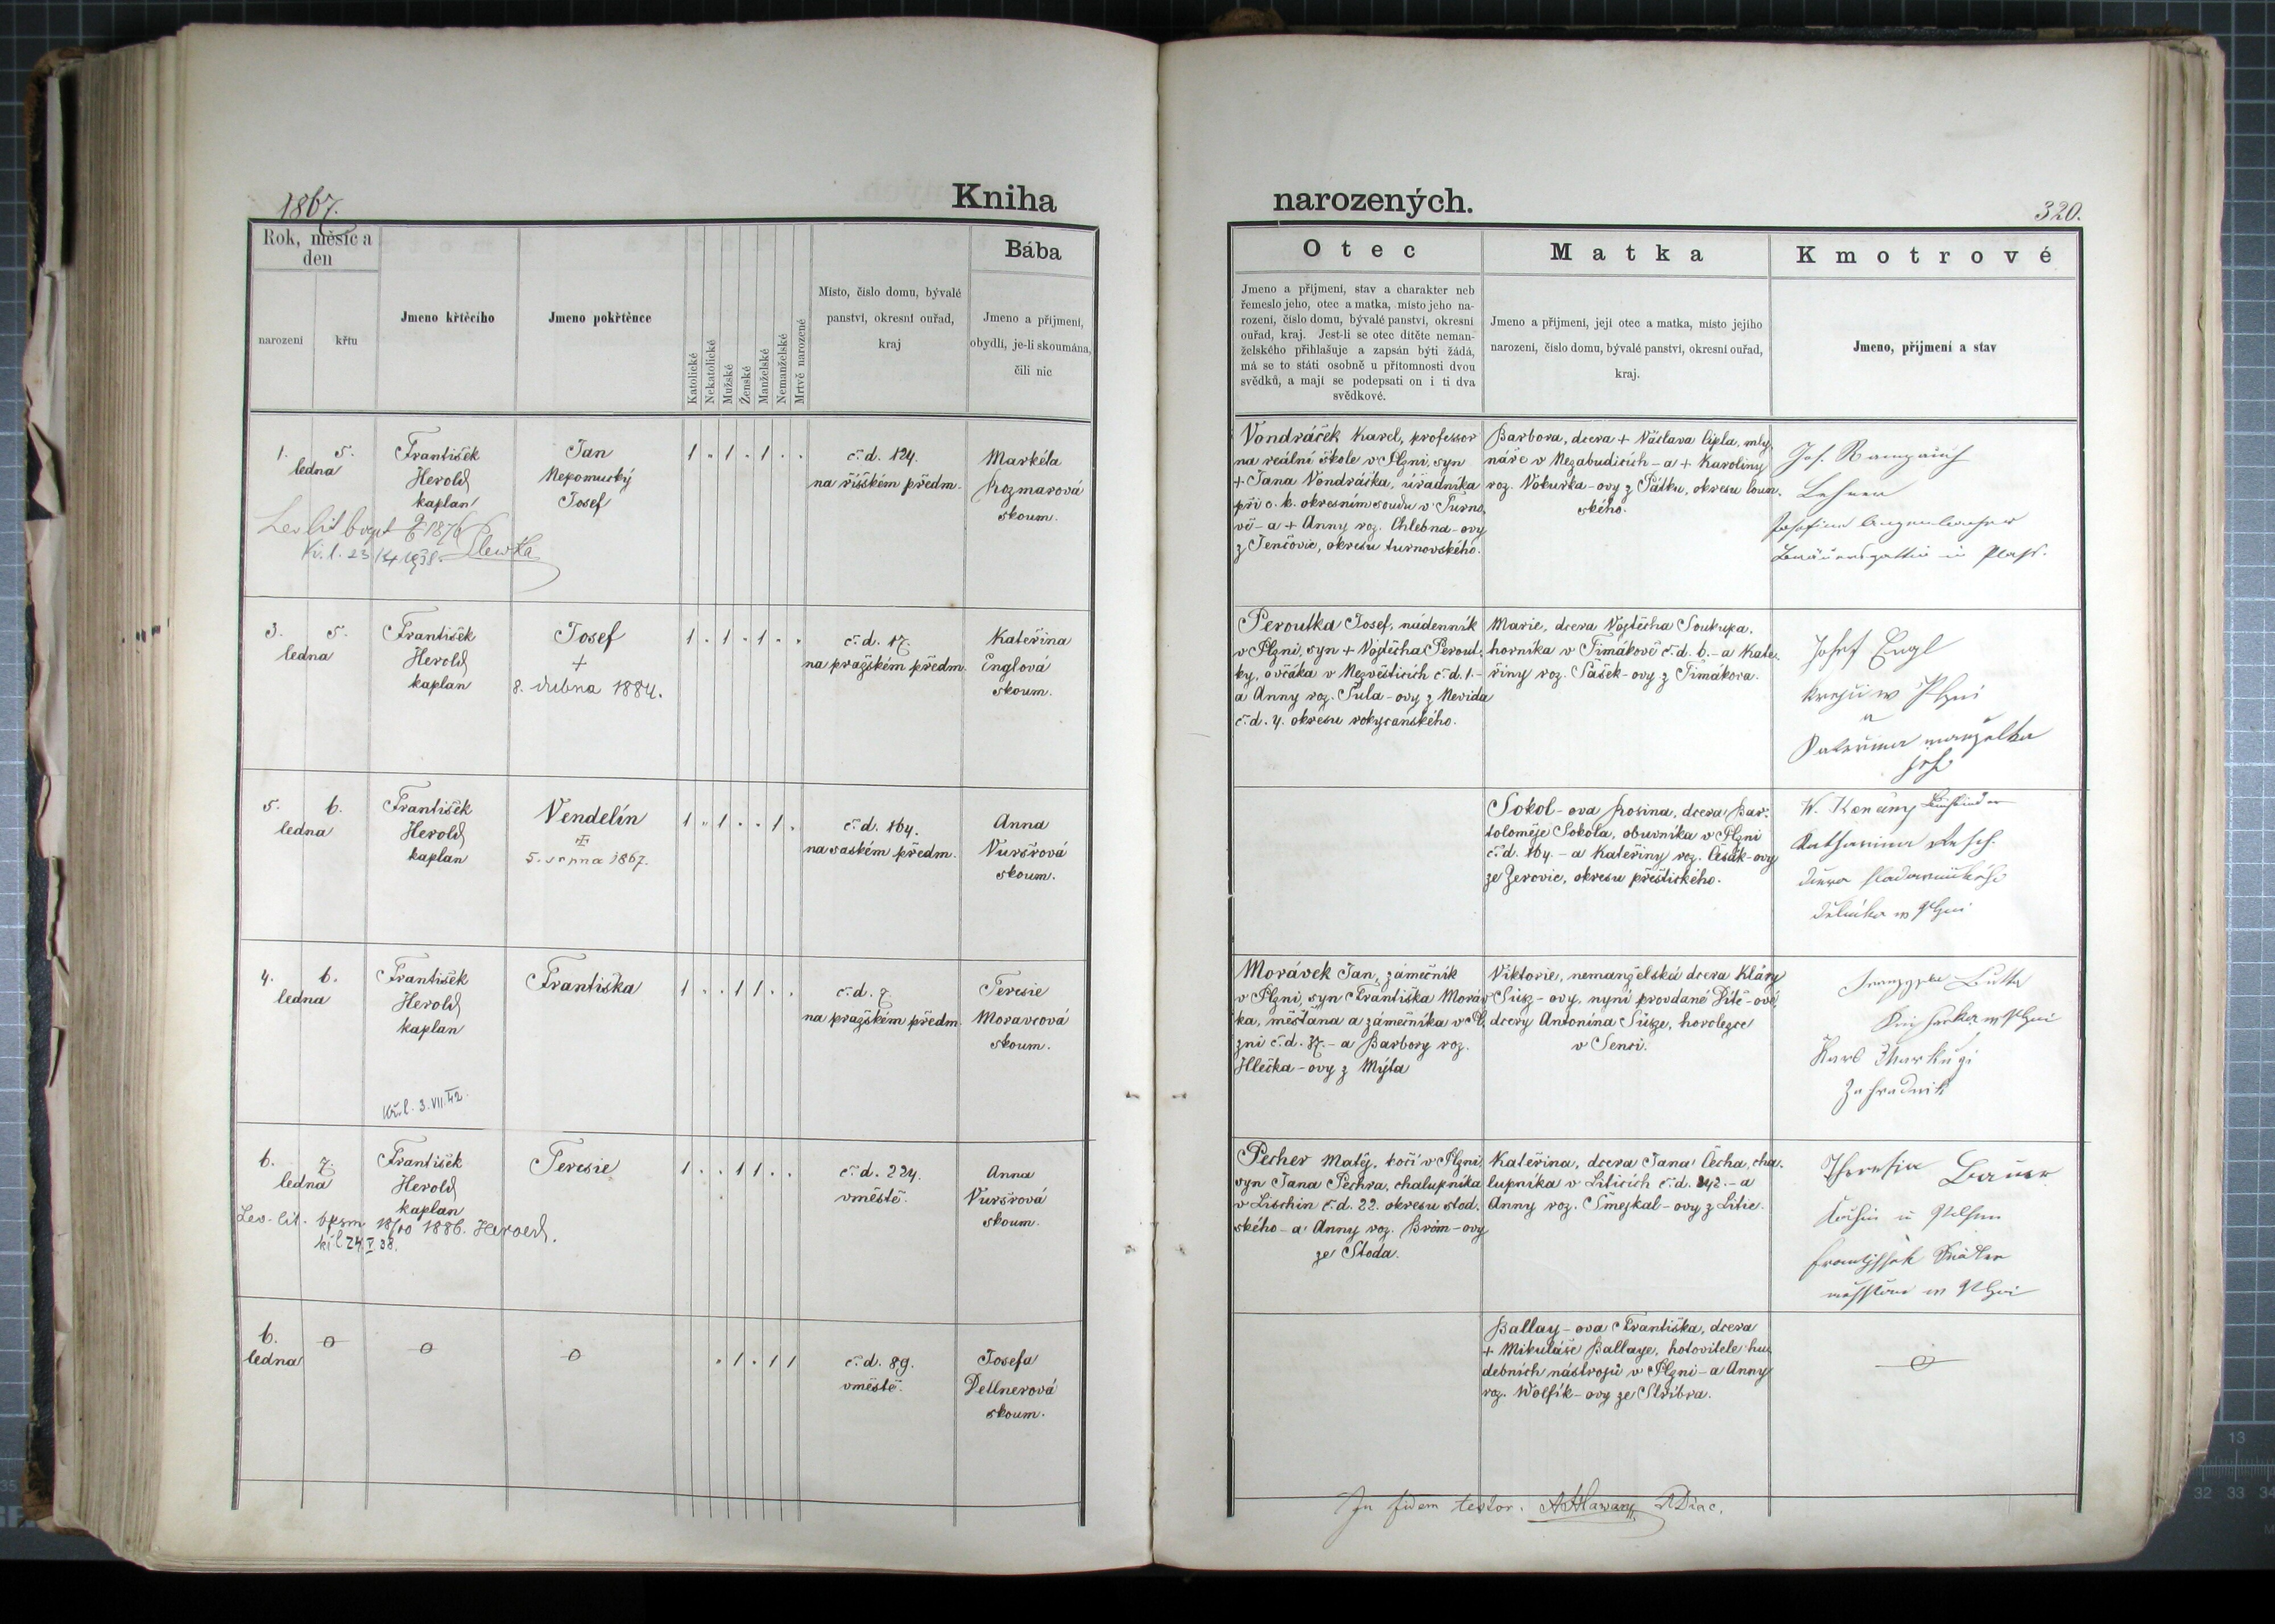 1867.
Kniha
Rok, měsíc a
den
narození
křtu
Jmeno křtěcího
Jmeno pokřtěnce
Katolické
Nekatolické
Mužské
Ženské
Manželské
Nemanželské
Mrtvě narozené
Místo, číslo domu, bývalé
panství, okresní ouřad,
kraj
Bába
Jmeno a příjmení,
obydlí, je-li skoumána,
čili nic
1. 5.
ledna
František
Herold
kaplan
Jan
Nepomucký
Josef
1 " 1 . 1 . .
č. d. 124.
na říšském předm.
Markéta
Kozmarová
skoum.
Lev. lit bapt 1876
Kř. l. 23/4 1938.
3. 5.
ledna
František
Herold
kaplan
Josef
+
8. dubna 1884.
1 . 1 . 1 . .
č. d. 17.
na pražském předm.
Kateřina
Englová
skoum.
5. 6.
ledna
František
Herold
kaplan
Vendelín
5. srpna 1867.
1 " 1 . . 1 .
č. d. 164.
na saském předm.
Anna
Vuršrová
skoum.
4. 6.
ledna
František
Herold
kaplan
Františka
1 . . 1 1 . .
č. d. 7
na pražském předm.
Teresie
Moravcová
skoum.
Kř. l. 3. VII. 42.
6. 7.
ledna
František
Herold
kaplan
Teresie
1 . . 1 1 . .
č. d. 224.
v městě.
Anna
Vuršrová
skoum.
Lev. lit. bpsm 18/10 1886. Herold.
kř l 24. V 38.
6.
ledna
o
o
o
" 1 . 1 1
č. d. 89.
v městě.
Josefa
Dellnerová
skoum.
narozených.
320.
Otec
Jmeno a příjmení, stav a charakter neb
řemeslo jeho, otec a matka, místo jeho na-
rození, číslo domu, bývalé panství, okresní
ouřad, kraj. Jest-li se otec dítěte neman-
želského přihlašuje a zapsán býti žádá,
má se to státi osobně u přítomnosti dvou
svědků, a mají se podepsati on i ti dva
svědkové.
Matka
Jmeno a příjmení, její otec a matka, místo jejího
narození, číslo domu, bývalé panství, okresní ouřad,
kraj.
Kmotrové
Jmeno, příjmení a stav
Vondráček Karel, professor
na reální škole v Plzni, syn
+ Jana Vondráčka, úřadníka
při c. k. okresním soudu v Turno-
vě - a + Anny roz. Chlebna-ovy
z Jenčovic, okresu turnovského.
Barbora, dcera + Václava Cipla, mly-
náře v Nezabudicích - a + Karoliny
roz. Vokurka-ovy z Pátku, okresu loun-
ského.
Jos.
Lehrer
Josefine
in Plass.
Peroutka Josef, nádenník
v Plzni, syn + Vojtěcha Perout-
ky, ovčáka v Nezvěsticích č. d. 1. -
a Anny roz. Šula-ovy z Nevida
č. d. 4. okresu rokycanského.
Marie, dcera Vojtěcha Soukupa,
horníka v Timákově č. d. 6. - a Kate-
řiny roz. Sašek-ovy z Timákova.
Josef Engl
krejčí w Plzni
a
Kateřina manželka
jeho
Sokol-ova Rosina, dcera Bar-
toloměje Sokola, obuvníka v Plzni
č. d. 164. - a Kateřiny roz. Česák-ovy
ze Zerovic, okresu přeštického.
W. Konečny
Katharina
dcera
dělníka w Plzni
Morávek Jan, zámečník
v Plzni, syn Františka Moráv-
ka, měšťana a zámečníka v Pl-
zni č. d. 37. - a Barbory roz.
Hlečka-ovy z Mýta
Viktorie, nemanželská dcera Kláry
Süsz-ovy, nyní provdané Dítě-ové,
dcery Antonína Süsze, horolezce
v Senci.
w Plzni
Karl
Zahradnik
Pecher Matěj, kočí v Plzni,
syn Jana Pechra, chalupníka
v Lischin č. d. 22. okresu stod-
ského - a Anny roz. Bröm-ovy
ze Stoda.
Kateřina, dcera Jana Čecha, cha-
lupníka v Liticích č. d. 242. - a
Anny roz. Šmejkal-ovy z Litic.
Theresia Bauer
Köchin in Pilsen
w Plzni
Ballay-ova Františka, dcera
+ Mikuláše Ballaye, hotovitele hu-
debních nástrojů v Plzni - a Anny
roz. Wolfík-ovy ze Stříbra.
o
In fidem testor.